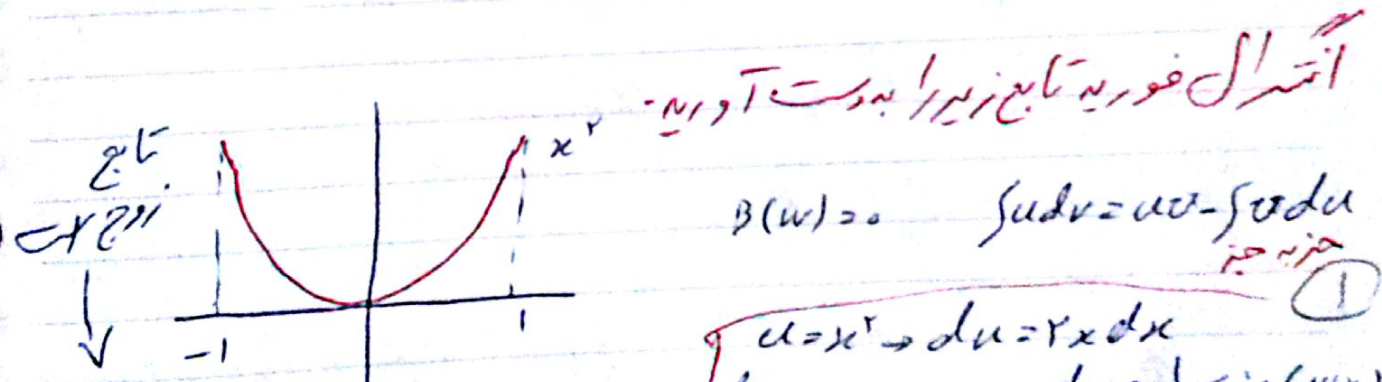 انتگرال فوریه تابع زیر را بدست آورید.
تابع زوج است
x²
B(w)=۰ ∫udv=uv-∫vdu
جزء به جزء
①
u=x² → du=۲xdx
-1 1